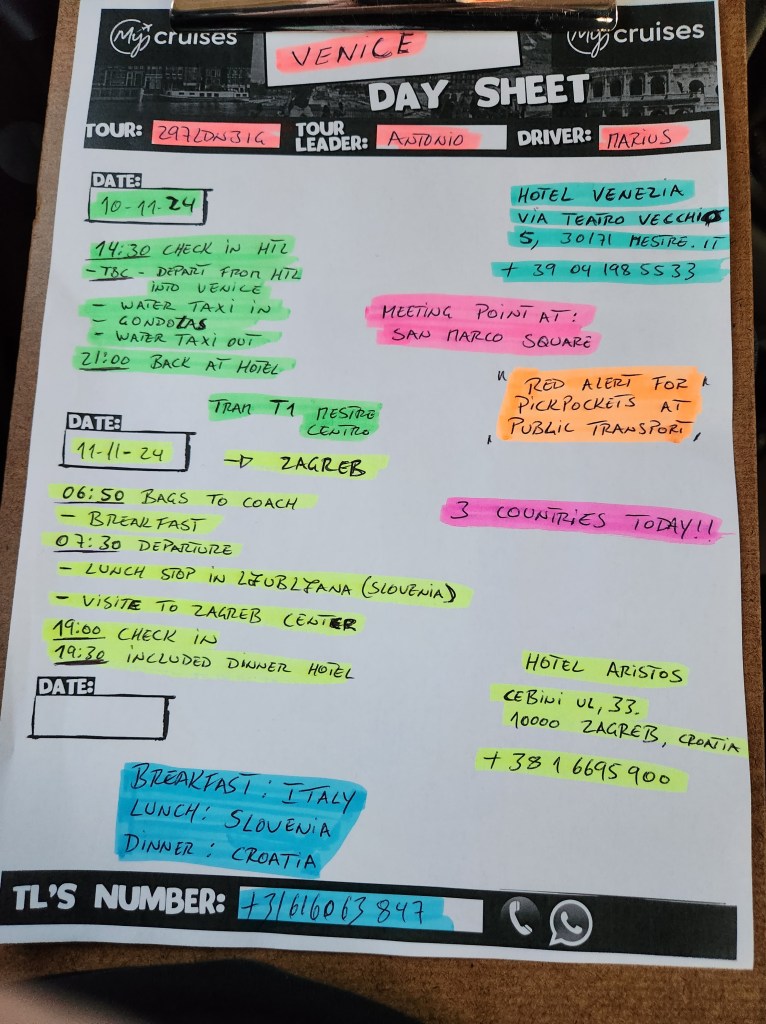 My cruises
VENICE
My cruises
DAY SHEET
TOUR: 297LDNBIG TOUR LEADER: ANTONIO DRIVER: MARIUS
DATE:
10-11-24
14:30 CHECK IN HTL
- TBC - DEPART FROM HTL
INTO VENICE
- WATER TAXI IN
- GONDOLAS
- WATER TAXI OUT
21:00 BACK AT HOTEL
TRAM T1 MESTRE
CENTRO
HOTEL VENEZIA
VIA TEATRO VECCHIO
5, 30171 MESTRE. IT
+ 39 04 198 5533
MEETING POINT AT:
SAN MARCO SQUARE
"RED ALERT FOR
PICKPOCKETS AT
PUBLIC TRANSPORT"
DATE:
11-11-24
→ ZAGREB
06:50 BAGS TO COACH
- BREAKFAST
07:30 DEPARTURE
- LUNCH STOP IN LJUBLJANA (SLOVENIA)
- VISITE TO ZAGREB CENTER
19:00 CHECK IN
19:30 INCLUDED DINNER HOTEL
3 COUNTRIES TODAY!!
HOTEL ARISTOS
CEBINI UL, 33.
10000 ZAGREB, CROATIA
+ 38 1 6695 900
DATE:
BREAKFAST: ITALY
LUNCH: SLOVENIA
DINNER: CROATIA
TL'S NUMBER: +31616063 847